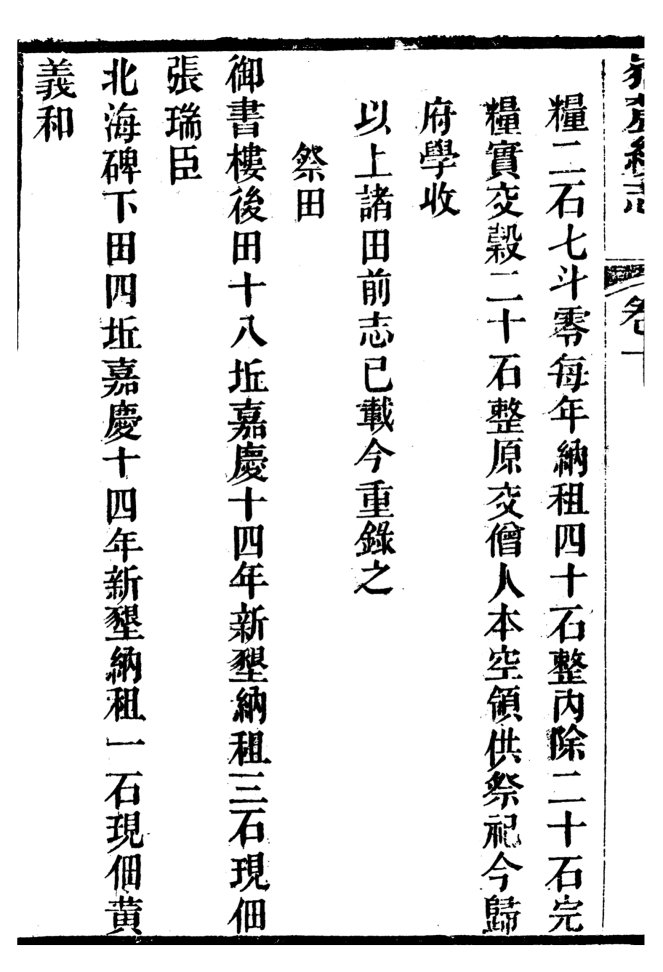 糧二石七斗零每年納租四十石整內除二十石完
糧實交穀二十石整原交僧人本空領供祭祀今歸
府學收
以上諸田前志已載今重錄之
祭田
御書樓後田十八坵嘉慶十四年新墾納租三石現佃
張瑞臣
北海碑下田四坵嘉慶十四年新墾納租一石現佃黄
義和